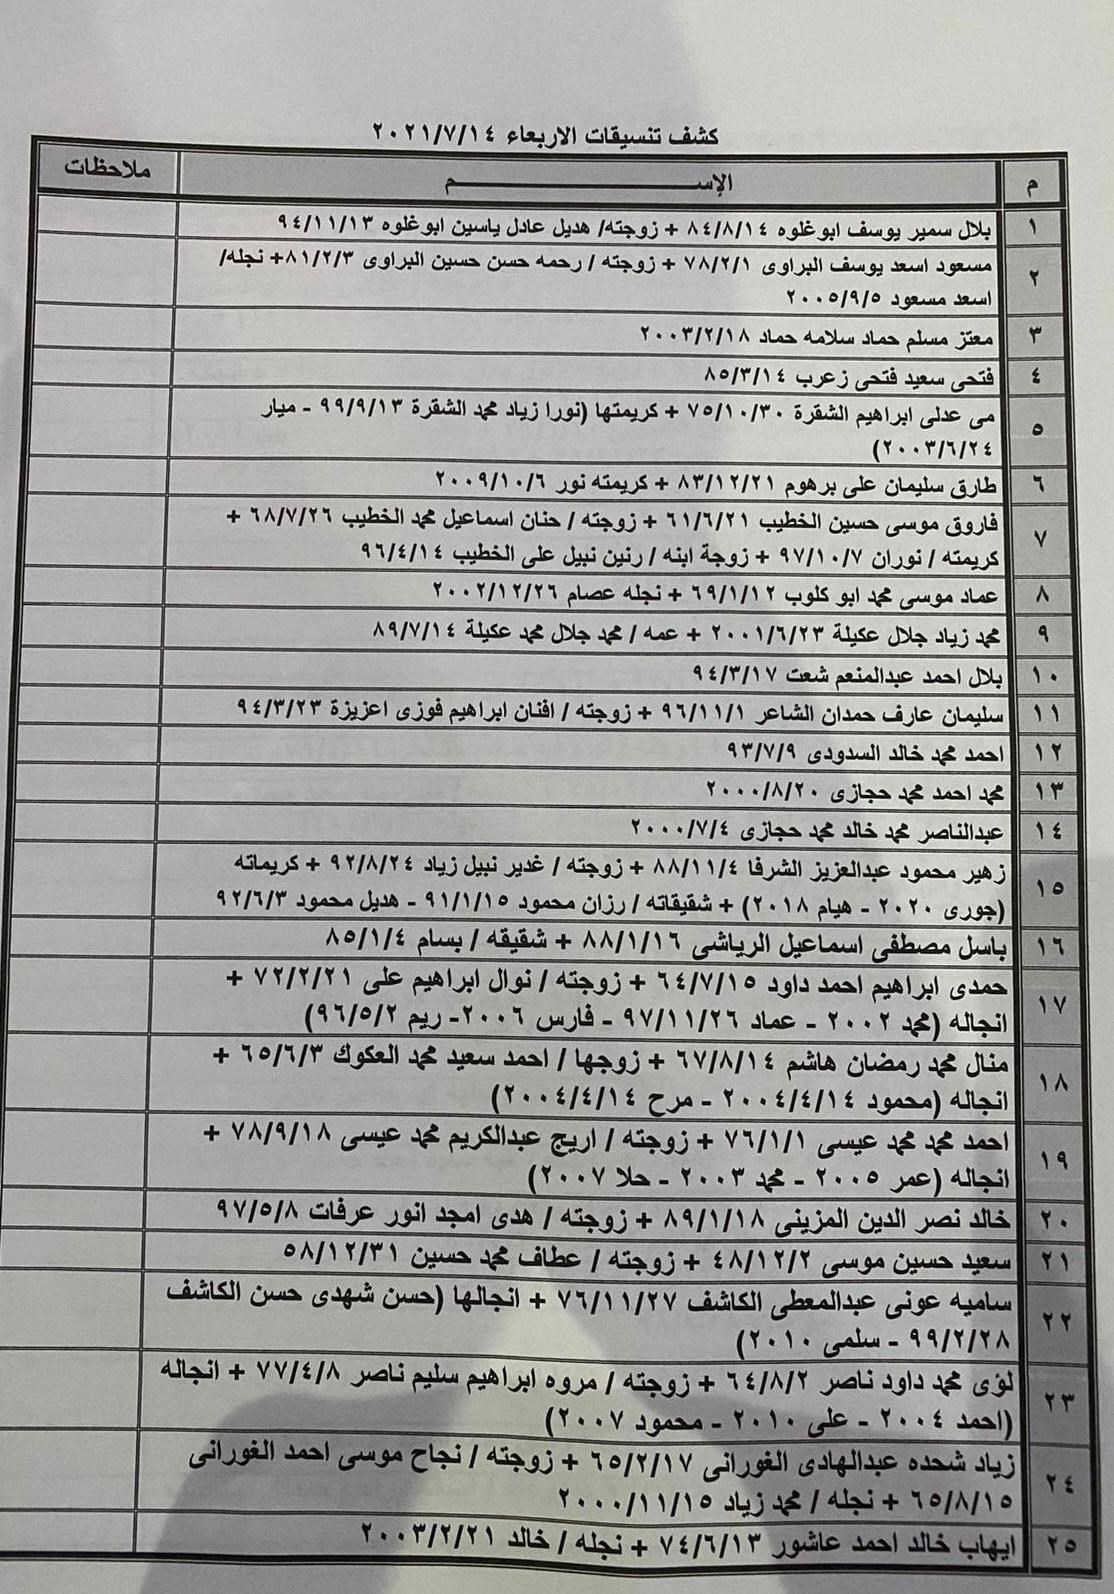 كشف تنسيقات الاربعاء ٢٠٢١/٧/١٤
م الإســـــــــــــم ملاحظات
١ بلال سمير يوسف ابوغلوه ٨٤/٨/١٤ + زوجته/ هديل عادل ياسين ابوغلوه ٩٤/١١/١٣
٢ مسعود اسعد يوسف البراوى ٧٨/٢/١ + زوجته / رحمه حسن حسين البراوى ٨١/٢/٣+ نجله/
اسعد مسعود ٢٠٠٥/٩/٥
٣ معتز مسلم حماد سلامه حماد ٢٠٠٣/٢/١٨
٤ فتحى سعيد فتحى زعرب ٨٥/٣/١٤
٥ مى عدلى ابراهيم الشقرة ٧٥/١٠/٣٠ + كريمتها (نورا زياد محمد الشقرة ٩٩/٩/١٣ - ميار
٢٠٠٣/٦/٢٤)
٦ طارق سليمان على برهوم ٨٣/١٢/٢١ + كريمته نور ٢٠٠٩/١٠/٦
٧ فاروق موسى حسين الخطيب ٦١/٦/٢١ + زوجته / حنان اسماعيل محمد الخطيب ٦٨/٧/٢٦ +
كريمته / نوران ٩٧/١٠/٧ + زوجة ابنه / رنين نبيل على الخطيب ٩٦/٤/١٤
٨ عماد موسى محمد ابو كلوب ٦٩/١/١٢ + نجله عصام ٢٠٠٢/١٢/٢٦
٩ محمد زياد جلال عكيلة ٢٠٠١/٦/٢٣ + عمه / محمد جلال محمد عكيلة ٨٩/٧/١٤
١٠ بلال احمد عبدالمنعم شعت ٩٤/٣/١٧
١١ سليمان عارف حمدان الشاعر ٩٦/١١/١ + زوجته / افنان ابراهيم فوزى اعزيزة ٩٤/٣/٢٣
١٢ احمد محمد خالد السدودى ٩٣/٧/٩
١٣ محمد احمد محمد حجازى ٢٠٠٠/٨/٢٠
١٤ عبدالناصر محمد خالد محمد حجازى ٢٠٠٠/٧/٤
١٥ زهير محمود عبدالعزيز الشرفا ٨٨/١١/٤ + زوجته / غدير نبيل زياد ٩٢/٨/٢٤ + كريماته
(جورى ٢٠٢٠ - هيام ٢٠١٨) + شقيقاته / رزان محمود ٩١/١/١٥ - هديل محمود ٩٢/٦/٣
١٦ باسل مصطفى اسماعيل الرياشى ٨٨/١/١٦ + شقيقه / بسام ٨٥/١/٤
١٧ حمدى ابراهيم احمد داود ٦٤/٧/١٥ + زوجته / نوال ابراهيم على ٧٢/٢/٢١ +
انجاله (محمد ٢٠٠٢ - عماد ٩٧/١١/٢٦ - فارس ٢٠٠٦- ريم ٩٦/٥/٢)
١٨ منال محمد رمضان هاشم ٦٧/٨/١٤ + زوجها / احمد سعيد محمد العكوك ٦٥/٦/٣ +
انجاله (محمود ٢٠٠٤/٤/١٤ - مرح ٢٠٠٤/٤/١٤)
١٩ احمد محمد محمد عيسى ٧٦/١/١ + زوجته / اريج عبدالكريم محمد عيسى ٧٨/٩/١٨ +
انجاله (عمر ٢٠٠٥ - محمد ٢٠٠٣ - حلا ٢٠٠٧)
٢٠ خالد نصر الدين المزينى ٨٩/١/١٨ + زوجته / هدى امجد انور عرفات ٩٧/٥/٨
٢١ سعيد حسين موسى ٤٨/١٢/٢ + زوجته / عطاف محمد حسين ٥٨/١٢/٣١
٢٢ ساميه عونى عبدالمعطى الكاشف ٧٦/١١/٢٧ + انجالها (حسن شهدى حسن الكاشف
٩٩/٢/٢٨ - سلمى ٢٠١٠)
٢٣ لؤى محمد داود ناصر ٦٤/٨/٢ + زوجته / مروه ابراهيم سليم ناصر ٧٧/٤/٨ + انجاله
(احمد ٢٠٠٤ - على ٢٠١٠ - محمود ٢٠٠٧)
٢٤ زياد شحده عبدالهادى الغورانى ٦٥/٢/١٧ + زوجته / نجاح موسى احمد الغورانى
٦٥/٨/١٥ + نجله / محمد زياد ٢٠٠٠/١١/١٥
٢٥ ايهاب خالد احمد عاشور ٧٤/٦/١٣ + نجله / خالد ٢٠٠٣/٢/٢١